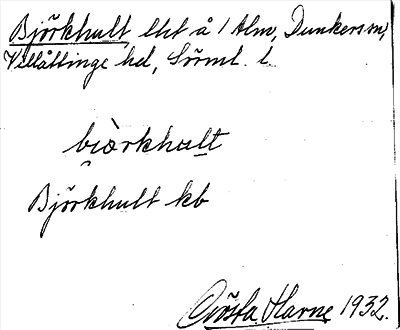 Björkhult lht å 1 Alm, Dunkers sn,
Villåttinge hd, Sörml. l.
bjàrkhult
Björkhult kb
Gösta Harne 1932.